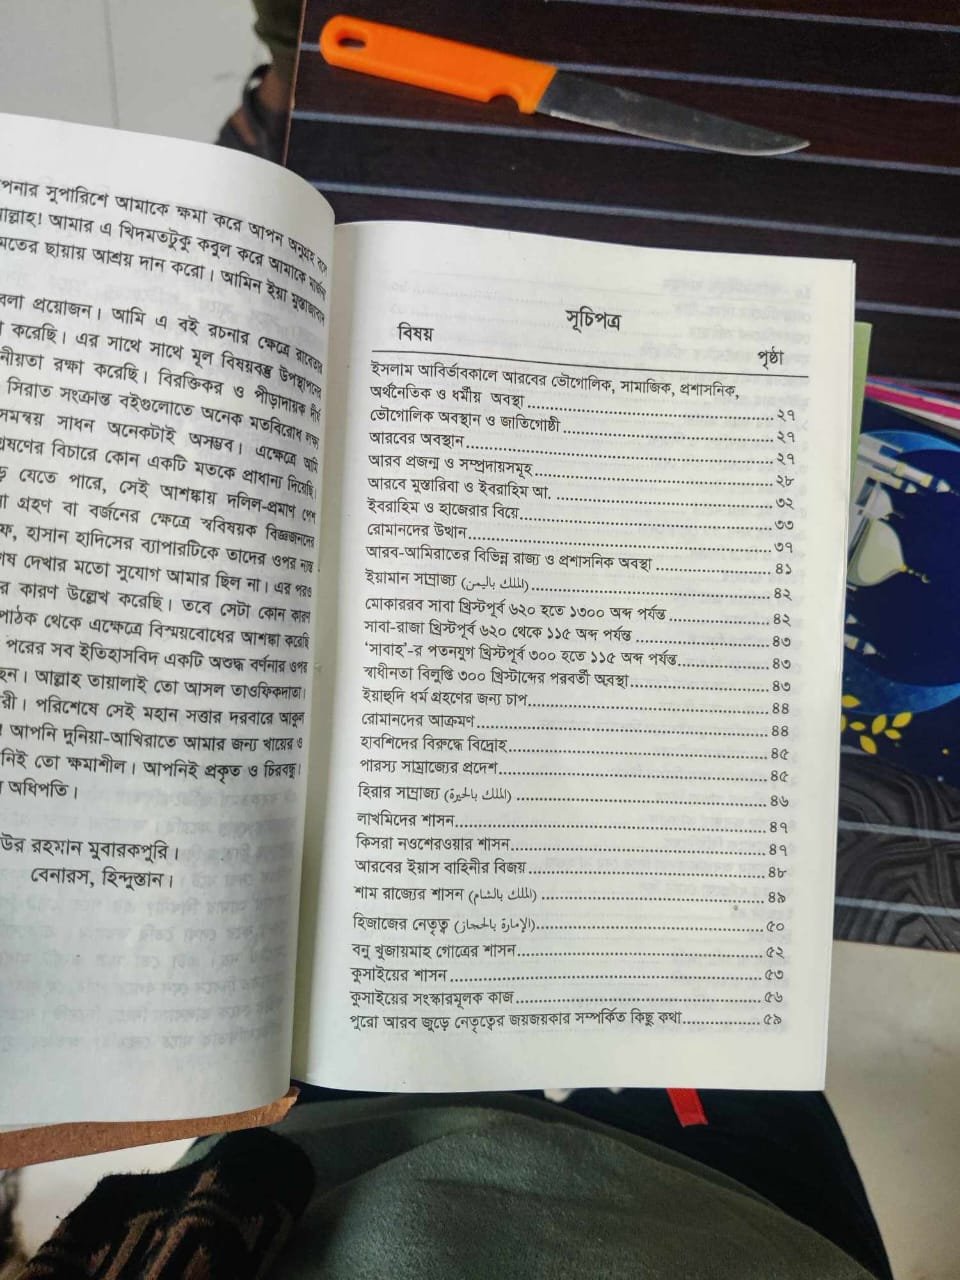 সুপারিশে আমাকে ক্ষমা করে আপন অনুগ্রহ
আমার এ খিদমতটুকু কবুল করে আমাকে
ছায়ায় আশ্রয় দান করো। আমিন ইয়া মুস্তাজাবাদ
প্রয়োজন। আমি এ বই রচনার ক্ষেত্রে
করেছি। এর সাথে সাথে মূল বিষয়বস্তু উপস্থাপনের
রক্ষা করেছি। বিরক্তিকর ও পীড়াদায়ক দীর্ঘ
সিরাত সংক্রান্ত বইগুলোতে অনেক মতবিরোধ লক্ষ্য
সমন্বয় সাধন অনেকটাই অসম্ভব। এক্ষেত্রে আমি
বিচারে কোন একটি মতকে প্রাধান্য দিয়েছি।
যেতে পারে, সেই আশঙ্কায় দলিল-প্রমাণ পেশ
গ্রহণ বা বর্জনের ক্ষেত্রে স্ববিষয়ক বিজ্ঞজনদের
হাসান হাদিসের ব্যাপারটিকে তাদের ওপর ন্যস্ত
দেখার মতো সুযোগ আমার ছিল না। এর পরও
কারণ উল্লেখ করেছি। তবে সেটা কোন কারণ
পাঠক থেকে এক্ষেত্রে বিস্ময়বোধের আশঙ্কা করেছি
পরের সব ইতিহাসবিদ একটি অশুদ্ধ বর্ণনার ওপর
আল্লাহ তায়ালাই তো আসল তাওফিকদাতা।
পরিশেষে সেই মহান সত্তার দরবারে আকুল
আপনি দুনিয়া-আখিরাতে আমার জন্য খায়ের ও
তো ক্ষমাশীল। আপনিই প্রকৃত ও চিরবন্ধু।
অধিপতি।
রহমান মুবারকপুরি।
বেনারস, হিন্দুস্তান।
সূচিপত্র
বিষয় পৃষ্ঠা
ইসলাম আবির্ভাবকালে আরবের ভৌগোলিক, সামাজিক, প্রশাসনিক,
অর্থনৈতিক ও ধর্মীয় অবস্থা ........ ২৭
ভৌগোলিক অবস্থান ও জাতিগোষ্ঠী ........ ২৭
আরবের অবস্থান ........ ২৭
আরব প্রজন্ম ও সম্প্রদায়সমূহ ........ ২৮
আরবে মুস্তারিবা ও ইবরাহিম আ. ........ ৩২
ইবরাহিম ও হাজেরার বিয়ে ........ ৩৩
রোমানদের উত্থান ........ ৩৭
আরব-আমিরাতের বিভিন্ন রাজ্য ও প্রশাসনিক অবস্থা ........ ৪১
ইয়ামান সাম্রাজ্য (الملك باليمن) ........ ৪২
মোকাররব সাবা খ্রিস্টপূর্ব ৬২০ হতে ১৩০০ অব্দ পর্যন্ত ........ ৪২
সাবা-রাজা খ্রিস্টপূর্ব ৬২০ থেকে ১১৫ অব্দ পর্যন্ত ........ ৪৩
‘সাবাহ’-র পতনযুগ খ্রিস্টপূর্ব ৩০০ হতে ১১৫ অব্দ পর্যন্ত ........ ৪৩
স্বাধীনতা বিলুপ্তি ৩০০ খ্রিস্টাব্দের পরবর্তী অবস্থা ........ ৪৩
ইয়াহুদি ধর্ম গ্রহণের জন্য চাপ ........ ৪৪
রোমানদের আক্রমণ ........ ৪৪
হাবশিদের বিরুদ্ধে বিদ্রোহ ........ ৪৫
পারস্য সাম্রাজ্যের প্রদেশ ........ ৪৫
হিরার সাম্রাজ্য (الملك بالحيرة) ........ ৪৬
লাখমিদের শাসন ........ ৪৭
কিসরা নওশেরওয়ার শাসন ........ ৪৭
আরবের ইয়াস বাহিনীর বিজয় ........ ৪৮
শাম রাজ্যের শাসন (الملك بالشام) ........ ৪৯
হিজাজের নেতৃত্ব (الإمارة بالحجاز) ........ ৫০
বনু খুজায়মাহ গোত্রের শাসন ........ ৫২
কুসাইয়ের শাসন ........ ৫৩
কুসাইয়ের সংস্কারমূলক কাজ ........ ৫৬
পুরো আরব জুড়ে নেতৃত্বের জয়জয়কার সম্পর্কিত কিছু কথা ........ ৫৯